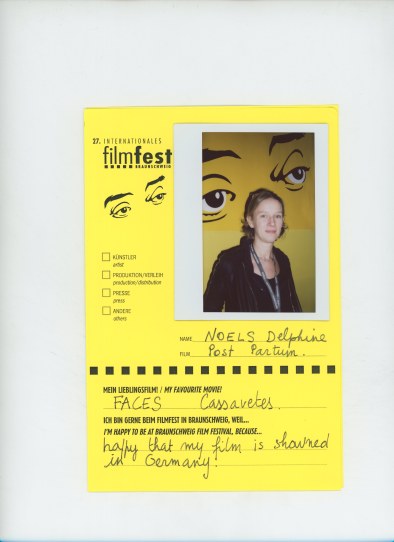 27. INTERNATIONALES
filmfest
BRAUNSCHWEIG
KÜNSTLER
artist
PRODUKTION/VERLEIH
production/distribution
PRESSE
press
ANDERE
others
NAME NOELS Delphine
FILM Post Partum.
MEIN LIEBLINGSFILM! / MY FAVOURITE MOVIE!
FACES Cassavetes.
ICH BIN GERNE BEIM FILMFEST IN BRAUNSCHWEIG, WEIL...
I'M HAPPY TO BE AT BRAUNSCHWEIG FILM FESTIVAL, BECAUSE...
happy that my film is showned
in Germany!